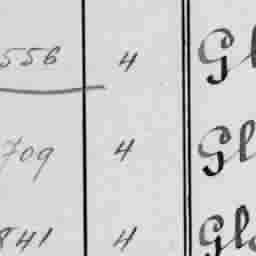 556 4 Gl
709 4 Gl
841 4 Gl